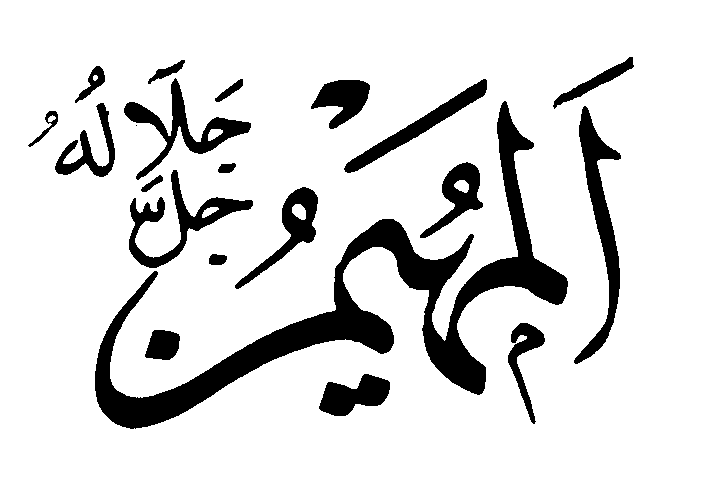 اَلْمُهَيْمِنُ
جَلَّ
جَلَالُهُ